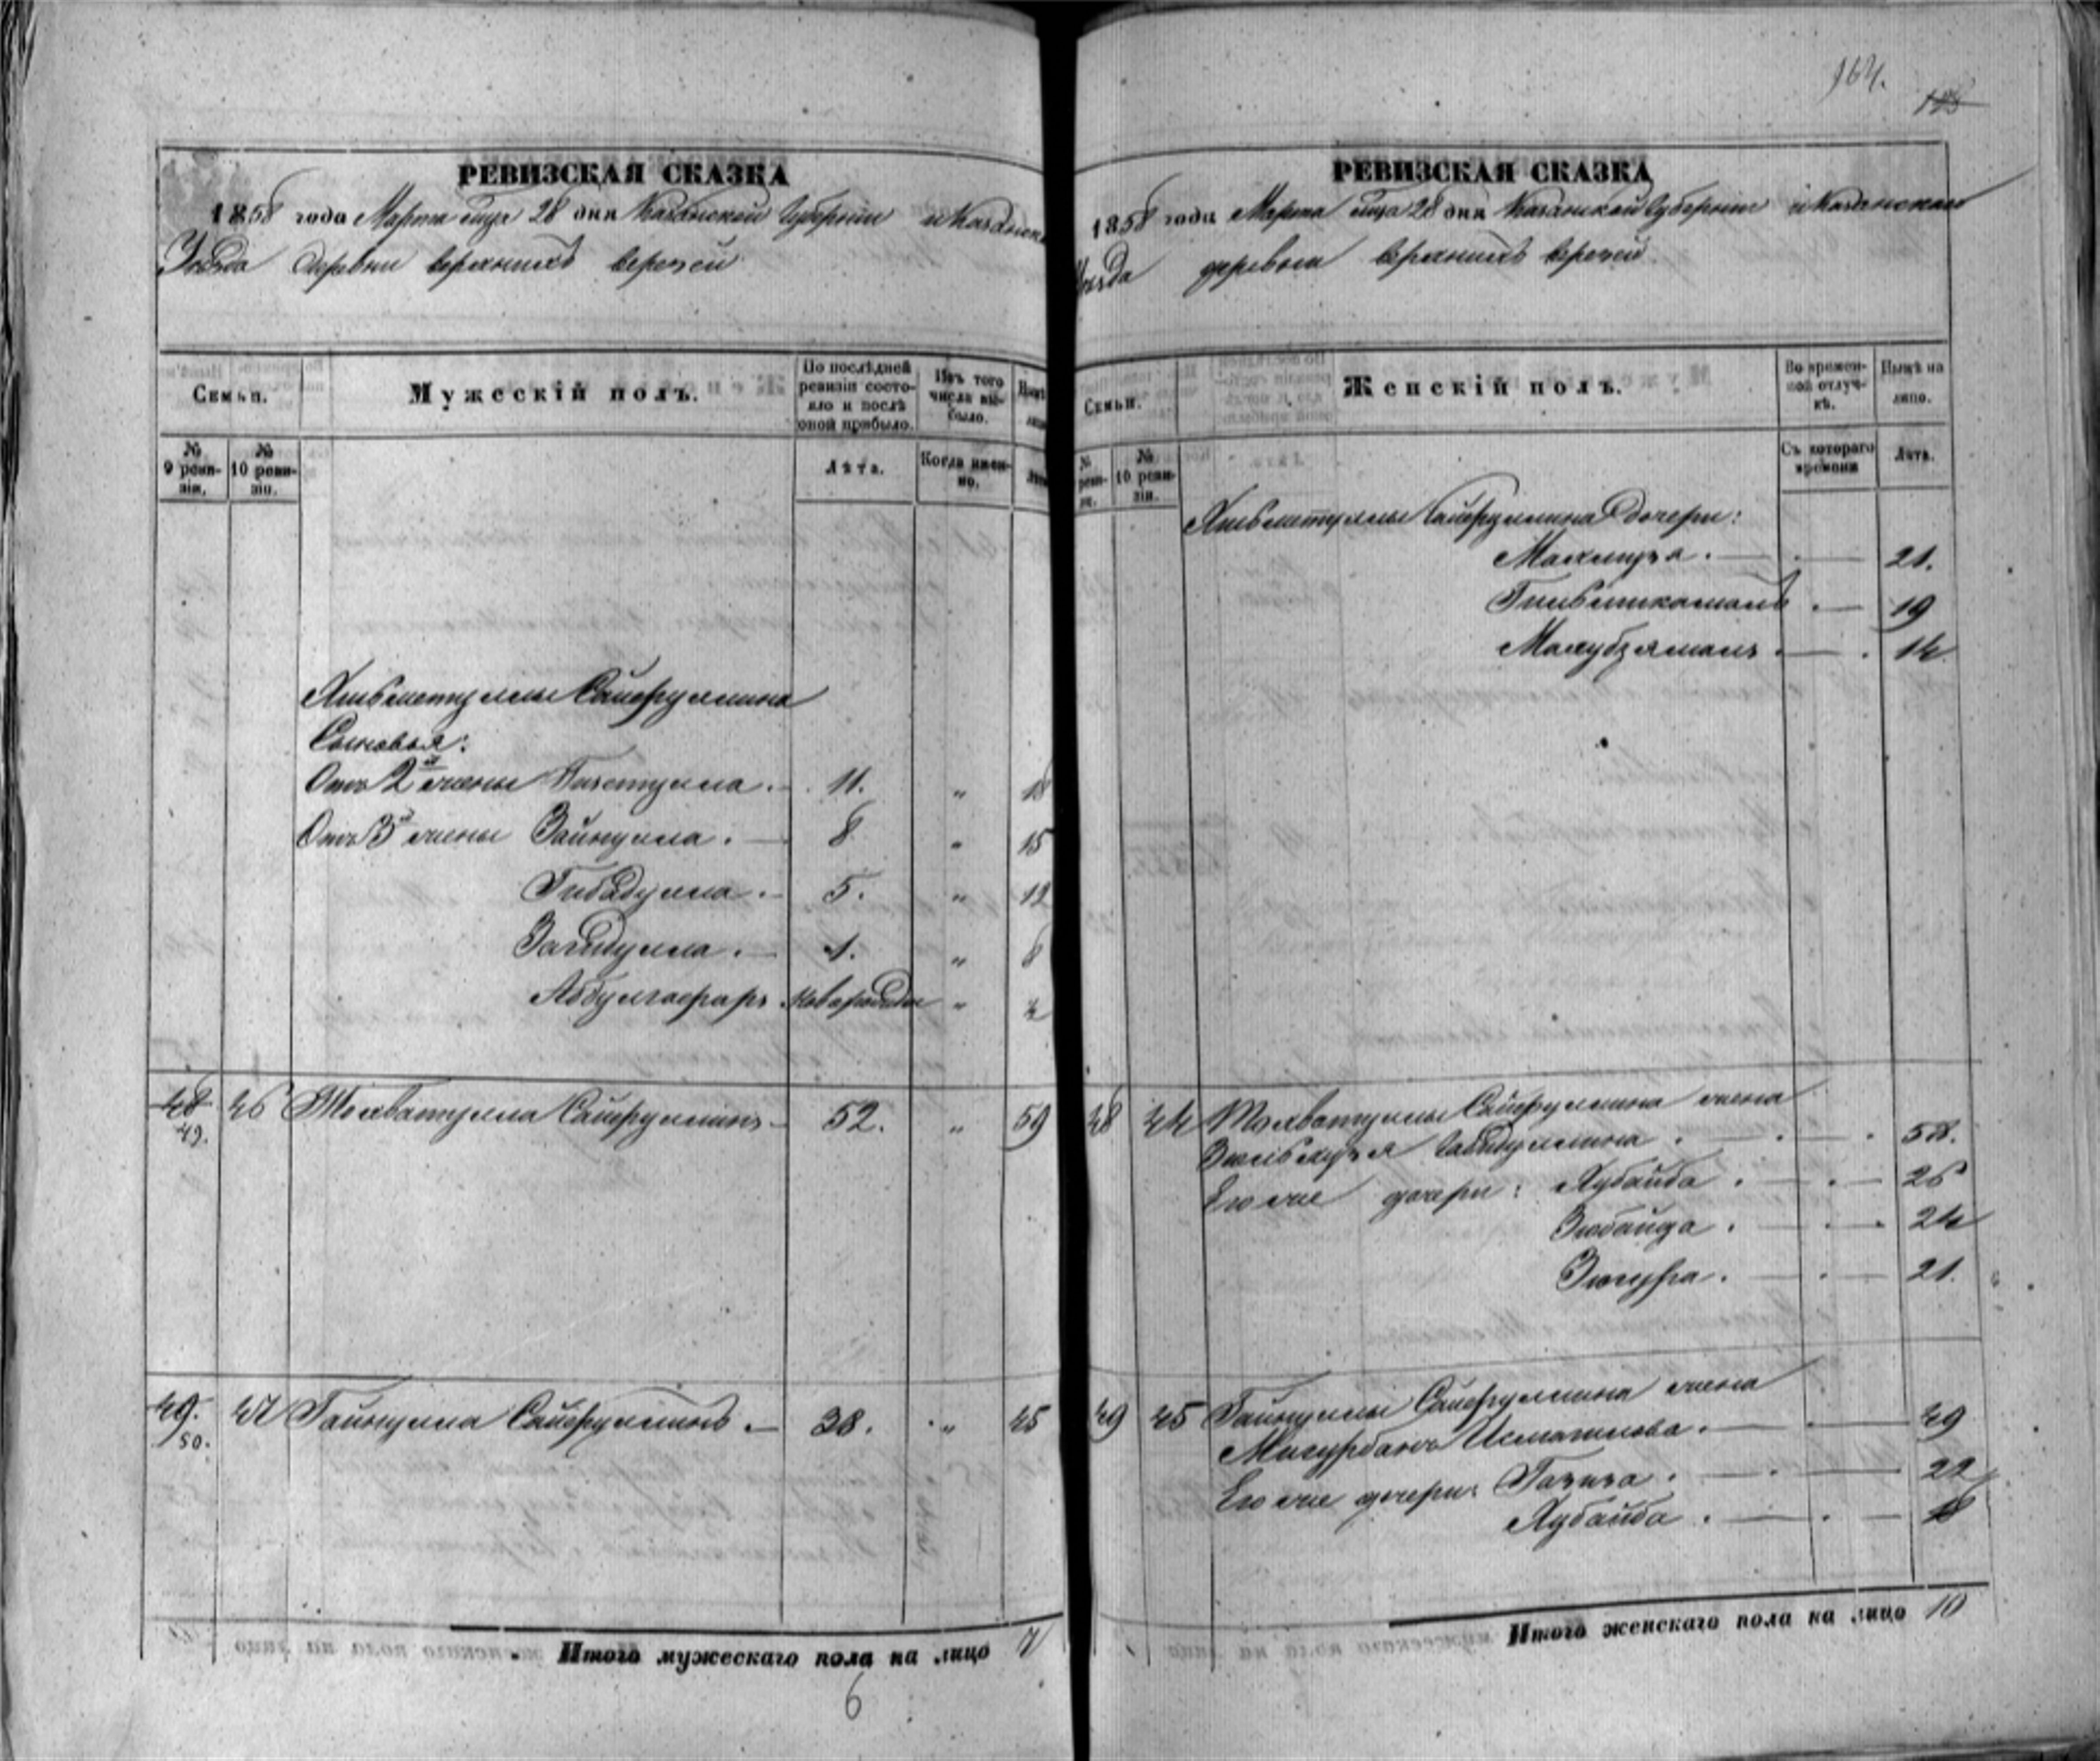 164.
118
РЕВИЗСКАЯ СКАЗКА
1858 года Марта м-ца 28 дня Казанской Губернии и Казанска
Уезда деревни верхнихъ верезей
Семьи.
Мужескій полъ.
По послѣдней ревизіи состояло и послѣ оной прибыло.
Изъ того числа выбыло.
№ 9 ревизіи.
№ 10 ревизіи.
Лѣта.
Когда именно.
Хисметуллы Сайфуллина
Сыновья:
Отъ 2й жены Гизетулла. 11. „ 18
Отъ 3й жены Зайнулла. 8 „ 15
Гибадулла. 5. „ 12
Загидулла. 1. „ 8
Абдулгафаръ новорожден „ 4
48 49. 46 Мохватулла Сайфуллинъ 52. „ 59
49. 50. 47 Гайнулла Сайфуллинъ. 38. „ 45
Итого мужескаго пола на лицо 7
6
РЕВИЗСКАЯ СКАЗКА
1858 года Марта м-ца 28 дня Казанской Губерніи и Казанскаго
Уезда деревни верхнихъ верезей
Семьи.
Женскій полъ.
Во временной отлучкѣ.
Нынѣ на лицо.
№ ревизіи.
№ 10 ревизіи.
Съ котораго времени
Лѣта.
Хисметуллы Сайфуллина дочери:
Махмуза. 21.
Гильмикамалъ. 19
Махубзямалъ. 14
48 44 Мохватуллы Сайфуллина жена
Габидуллина. 58.
Его же дочери: Хубайба. 26
Зюбайда. 24
Зюгура. 21.
49 45 Гайнуллы Сайфуллина жена
Мигурбанъ Исмагилова. 49
Его же дочери: Газиза. 22
Хубайба. 18
Итого женскаго пола на лицо 10